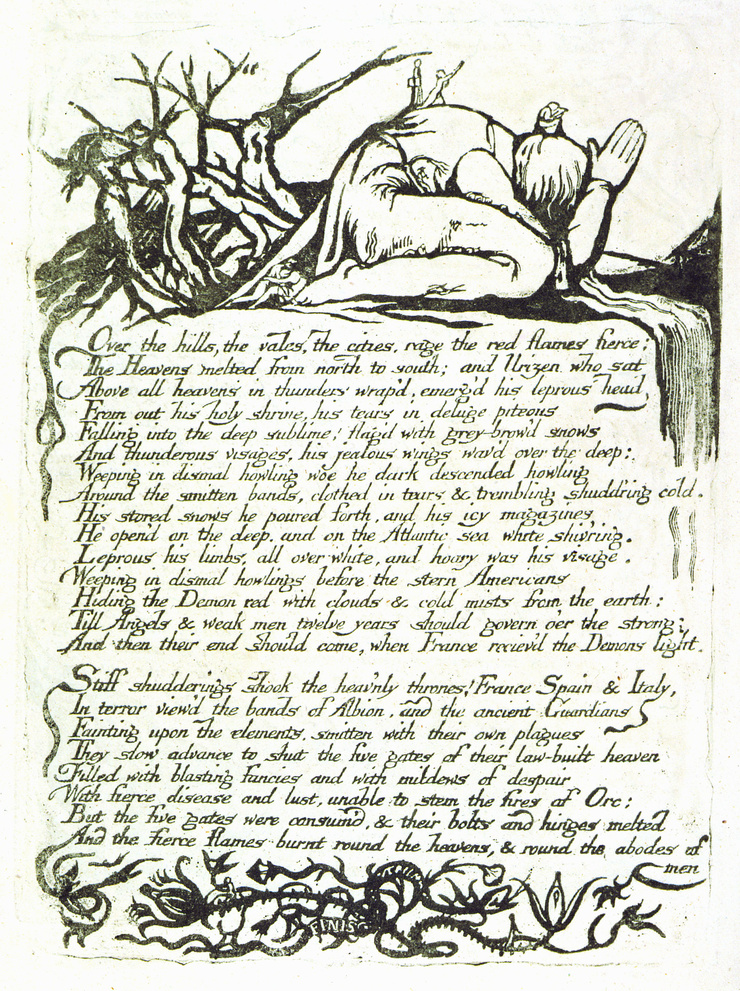 Over the hills, the vales, the cities, rage the red flames fierce;
The Heavens melted from north to south; and Urizen who sat
Above all heavens in thunders wrap'd, emerg'd his leprous head
From out his holy shrine, his tears in deluge piteous
Falling into the deep sublime! flag'd with grey-brow'd snows
And thunderous visages, his jealous wings wav'd over the deep;
Weeping in dismal howling woe he dark descended howling
Around the smitten bands, clothed in tears & trembling shudd'ring cold.
His stored snows he poured forth, and his icy magazines
He open'd on the deep, and on the Atlantic sea white shiv'ring.
Leprous his limbs, all over white, and hoary was his visage.
Weeping in dismal howlings before the stern Americans
Hiding the Demon red with clouds & cold mists from the earth;
Till Angels & weak men twelve years should govern o'er the strong;
And then their end should come, when France reciev'd the Demons light.
Stiff shudderings shook the heav'nly thrones! France Spain & Italy,
In terror view'd the bands of Albion, and the ancient Guardians
Fainting upon the elements, smitten with their own plagues
They slow advance to shut the five gates of their law-built heaven
Filled with blasting fancies and with mildews of despair
With fierce disease and lust, unable to stem the fires of Orc;
But the five gates were consum'd, & their bolts and hinges melted
And the fierce flames burnt round the heavens, & round the abodes of
men
FINIS